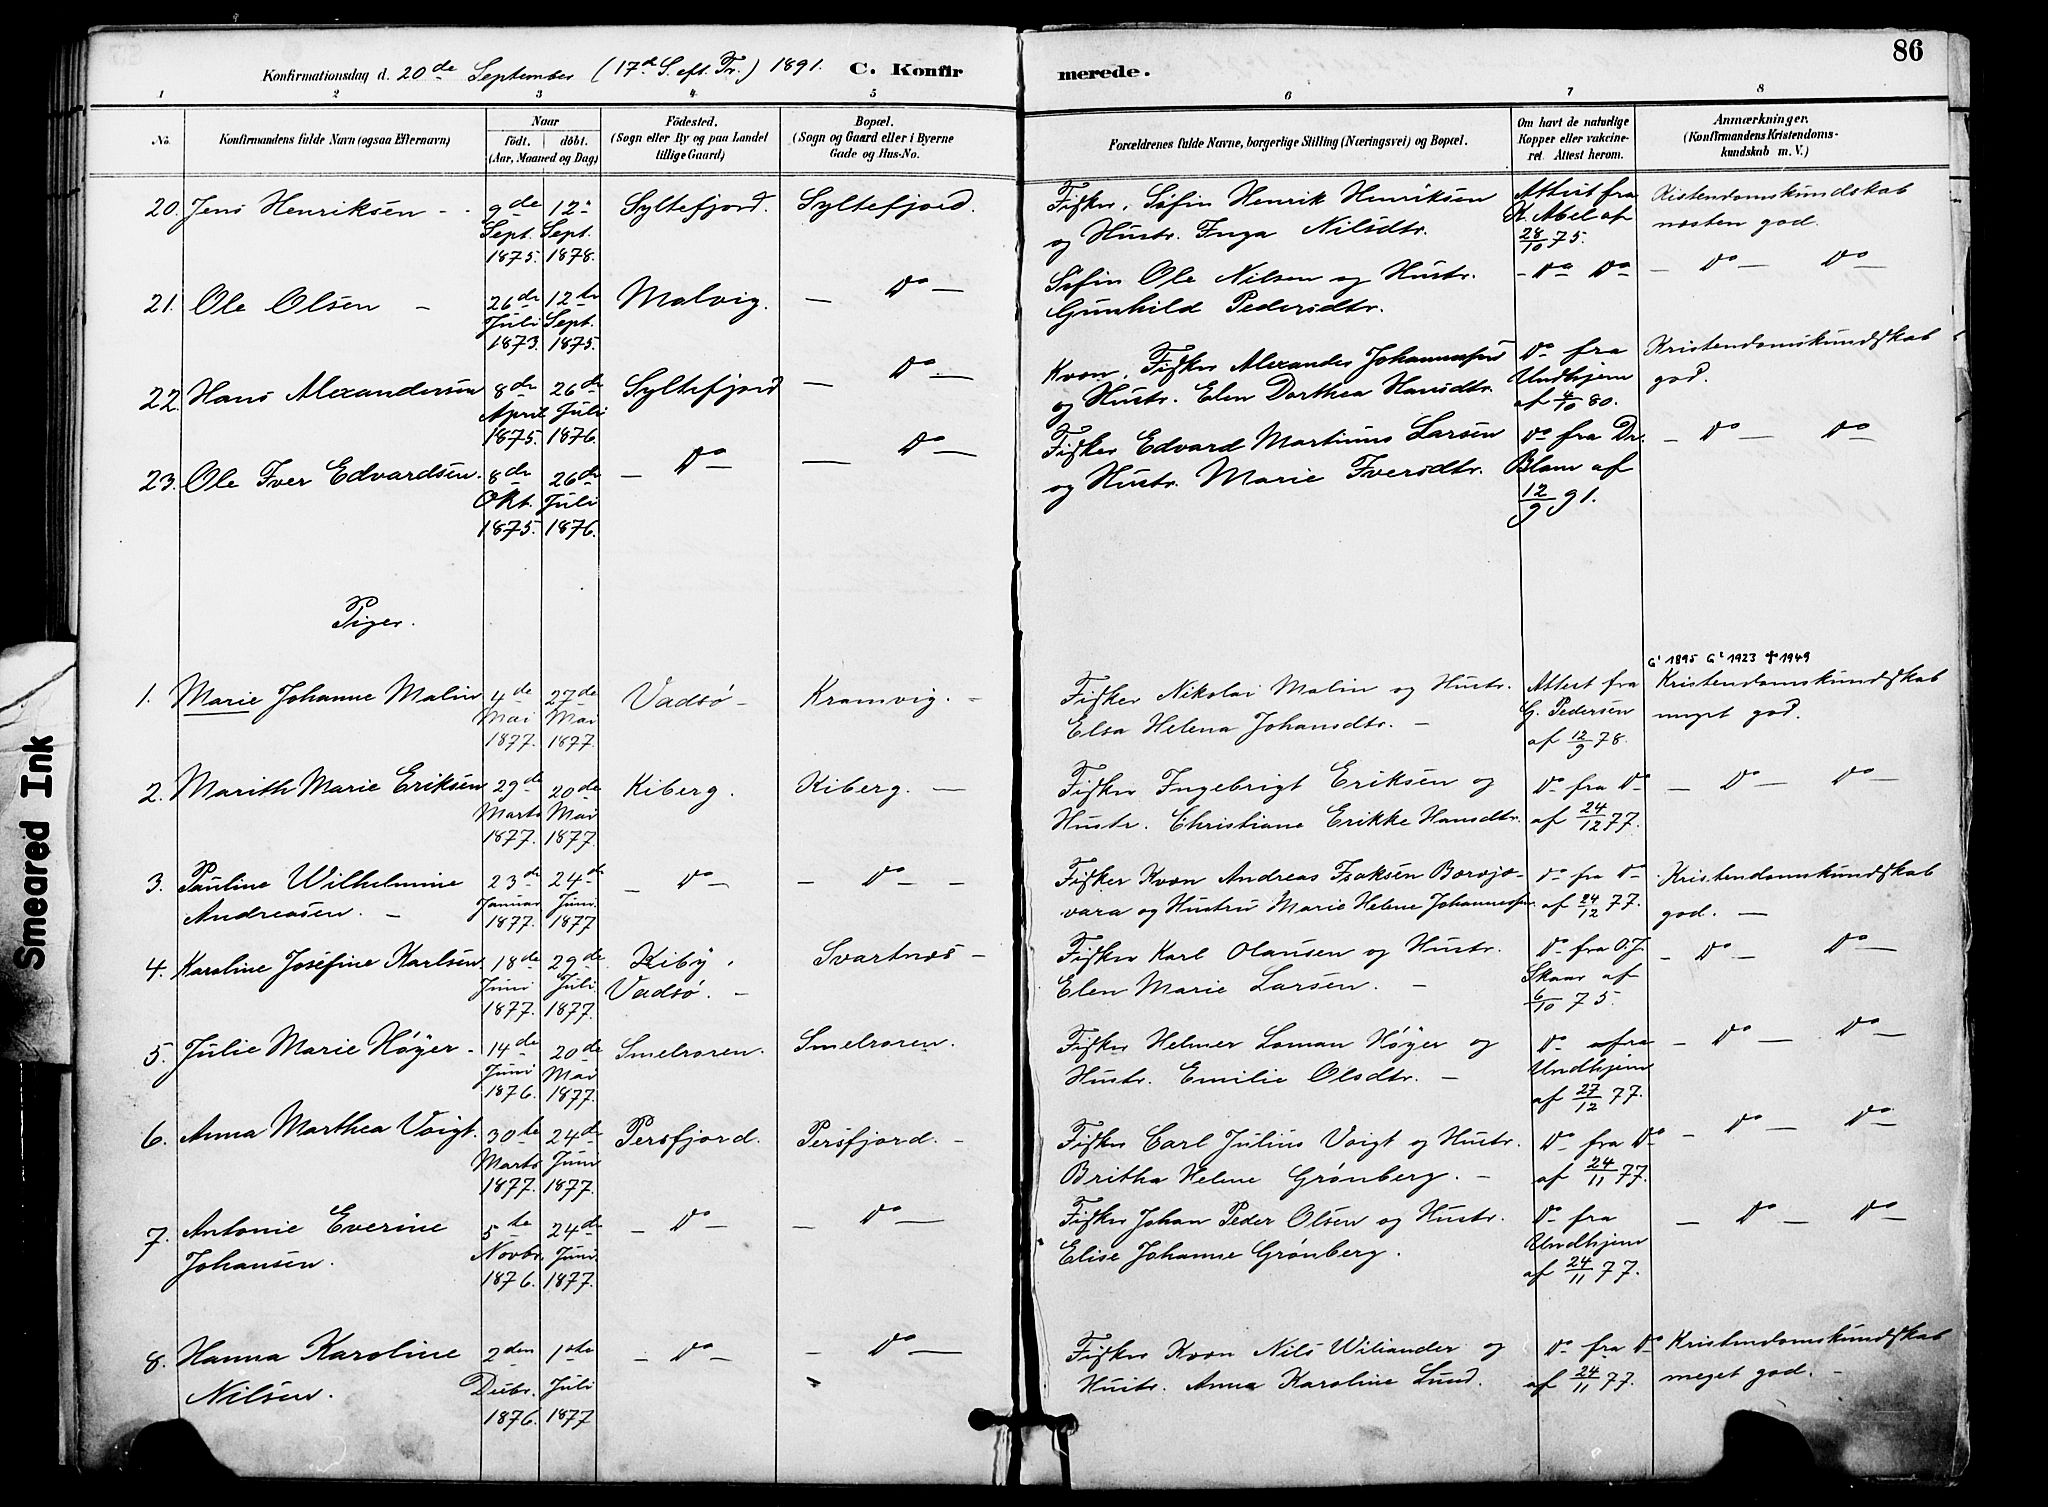 86
Konfirmationsdag d. 20de September (17de S. eft. Tr.) 1891. C. Konfirmerede.
1 2 3 4 5 6 7 8
No. Konfirmandens fulde Navn (ogsaa Efternavn) Naar födt. döbt. (Aar, Maaned og Dag) Födested. (Sogn eller By og paa Landet tillige Gaard) Bopæl. (Sogn og Gaard eller i Byerne Gade og Hus-No. Forældrenes fulde Navne, borgerlige Stilling (Næringsvei) og Bopæl. Om havt de naturlige Kopper eller vakcineret. Attest herom. Anmærkninger. (Konfirmandens Kristendomskundskab m. V.)
20. Jens Henriksen - - 9de 12' Syltefjord. Syltefjord. Fisker, Søfin Henrik Henriksen Attest fra Kristendomskundskab
Sept. Sept. og Hustr. Inga Nilsdtr. K. Abel af næsten god.
1875. 1878. 28/10 75.
21. Ole Olsen - 26de 12te Malvig. - Do - Søfin Ole Nilsen og Hustr. - Do Do - Do - Do
Juli Sept. Gunhild Pedersdtr.
1873. 1875.
22. Hans Alexandersen 8de 26de Syltefjord - Do - Kvæn, Fisker Alexander Johannesen Do fra Kristendomskundskab
April Juli og Hustr. Elen Dorthea Hansdtr. Undhjem god.
1875. 1876. af 4/10 80.
23. Ole Iver Edvardsen. 8de 26de - Do - - Do - Fisker Edvard Martinus Larsen Do fra Dr. - Do - Do
Okt. Juli og Hustr. Marie Iversdtr. Blam af
1875. 1876. 12/9 91.
Piger.
G¹ 1895 G² 1923 ✝1949
1. Marie Johanne Malin 4de 27de Vadsø - Kramvig. - Fisker Nikolai Malin og Hustr. Attest fra Kristendomskundskab
Mai Mai Elsa Helena Johansdtr. - G. Pedersen meget god.
1877. 1877. af 12/9 78.
2. Marith Marie Eriksen 29de 20de Kiberg. Kiberg. - Fisker Ingebrigt Eriksen og Do fra Do - Do - Do -
Marts Mai Hustr. Christiane Erikke Hansdtr. af 24/12 77.
1877. 1877.
3. Pauline Wilhelmine 23de 24de - Do - - Do - - Fisker Kvæn Andreas Isaksen Borvjo- Do fra Do Kristendomskundskab
Andreasen. - Januar Juni vara og Hustru Marie Helene Johannesen. af 24/12 77. god. -
1877. 1877
4. Karoline Josefine Karlsen. 18de 29de Kiby, Svartnæs - Fisker Karl Olausen og Hustr. Do fra O. J. - Do - Do -
Juni Juli Vadsø. - Elen Marie Larsen. - Skaar af
1877. 1877. 6/10 75.
5. Julie Marie Høyer - 14de 20de Smelroren. Smelroren. Fisker Helmer Loman Høyer og Do fra - Do - Do -
Juni Mai Hustr. Emilie Olsdtr. - Undhjem
1876. 1877. af 27/12 77.
6. Anna Marthea Voigt. 30te 24de Persfjord. Persfjord. - Fisker Carl Julius Voigt og Hustr. Do fra Do - Do - Do -
Marts Juni Britha Helene Grønberg. - af 24/11 77.
1877. 1877.
7. Antonie Everine 5te 24de - Do - - Do - Fisker Johan Peder Olsen og Hustr. Do fra - Do - Do -
Johansen. Novbr. Juni Elise Johanne Grønberg. Undhjem
1876. 1877. af 24/11 77.
8. Hanna Karoline 2den 1ste - Do - - Do - Fisker Kvæn Nils Wiliander og Do fra Do Kristendomskundskab
Nilsen. Decbr. Juli Hustr. Anna Karoline Lund. af 24/11 77. meget god. -
1876. 1877
Smeared Ink